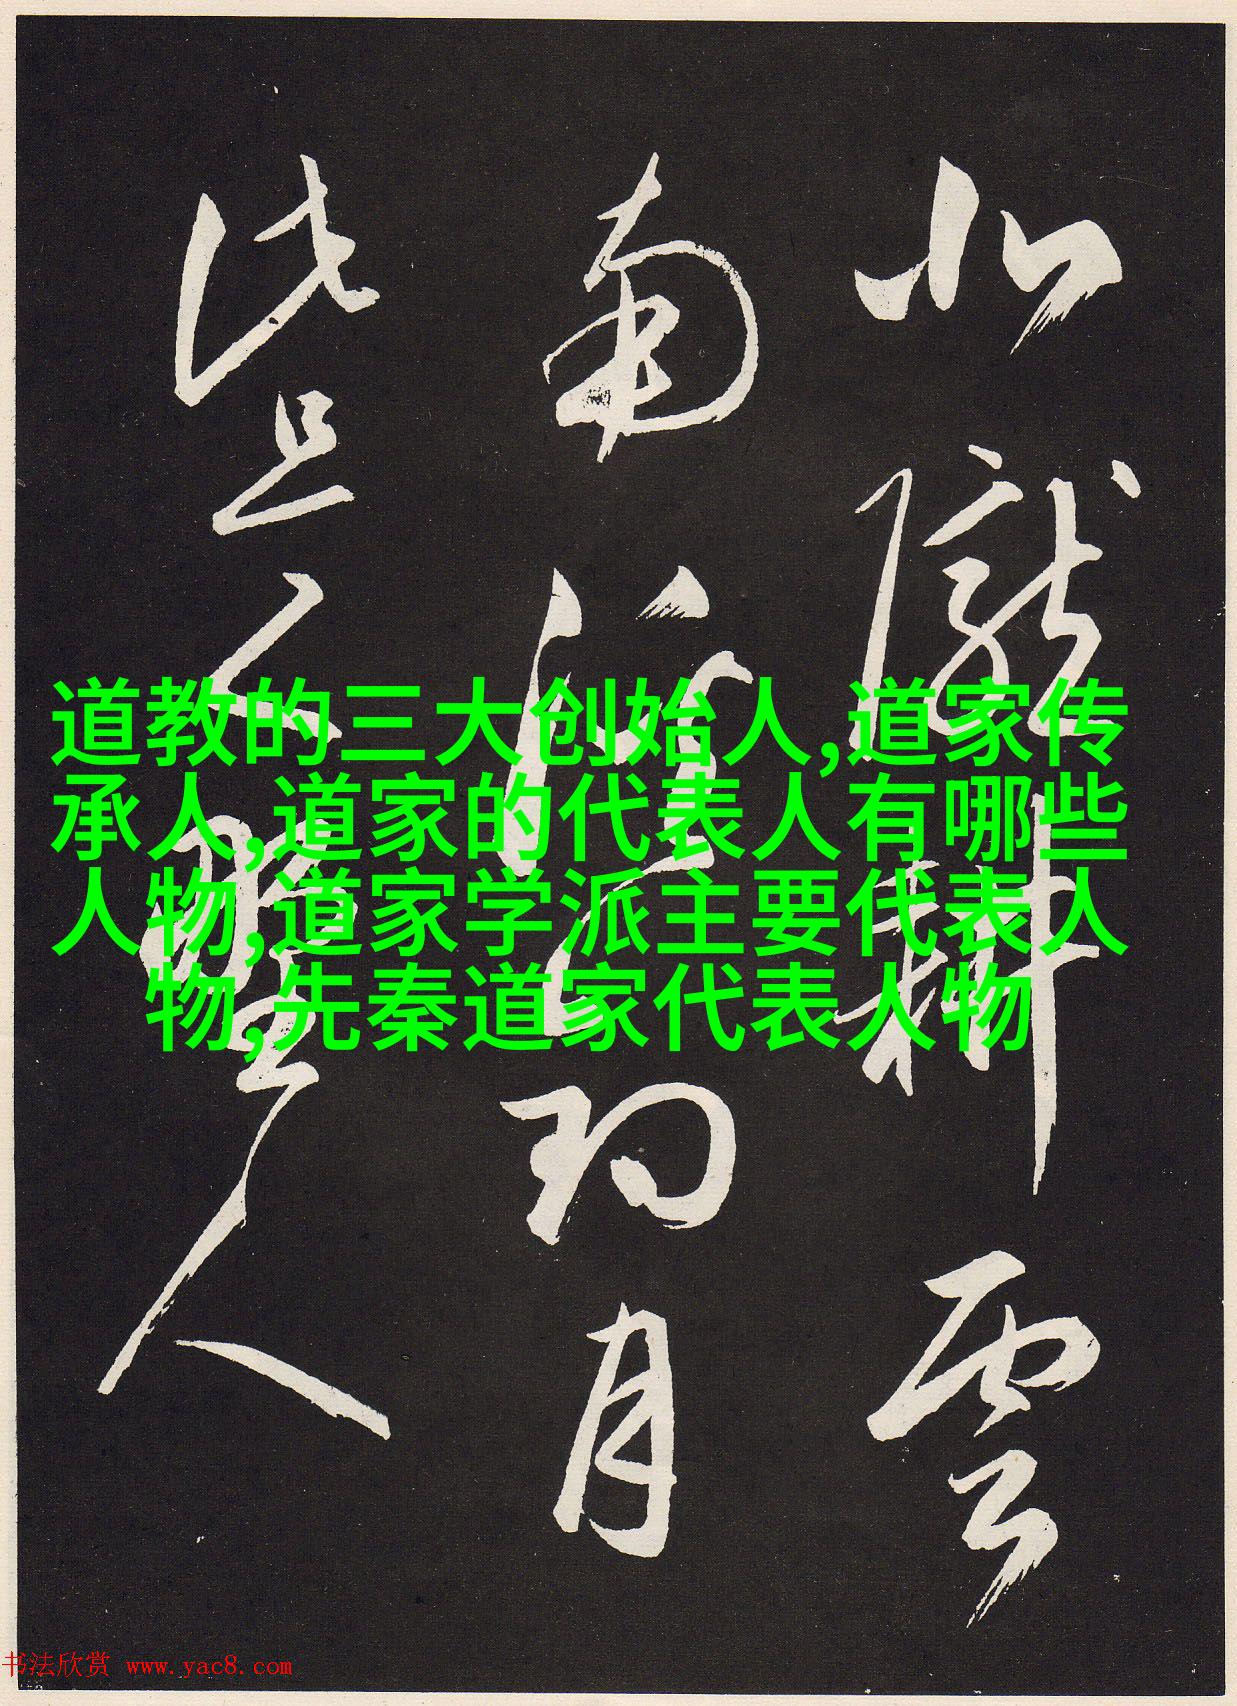 北隴耕雲
南溪釣月
此是野人
道教的三大创始人,道家传
承人,道家的代表人有哪些
人物,道家学派主要代表人
物,先秦道家代表人物
书法欣赏 www.yac8.com